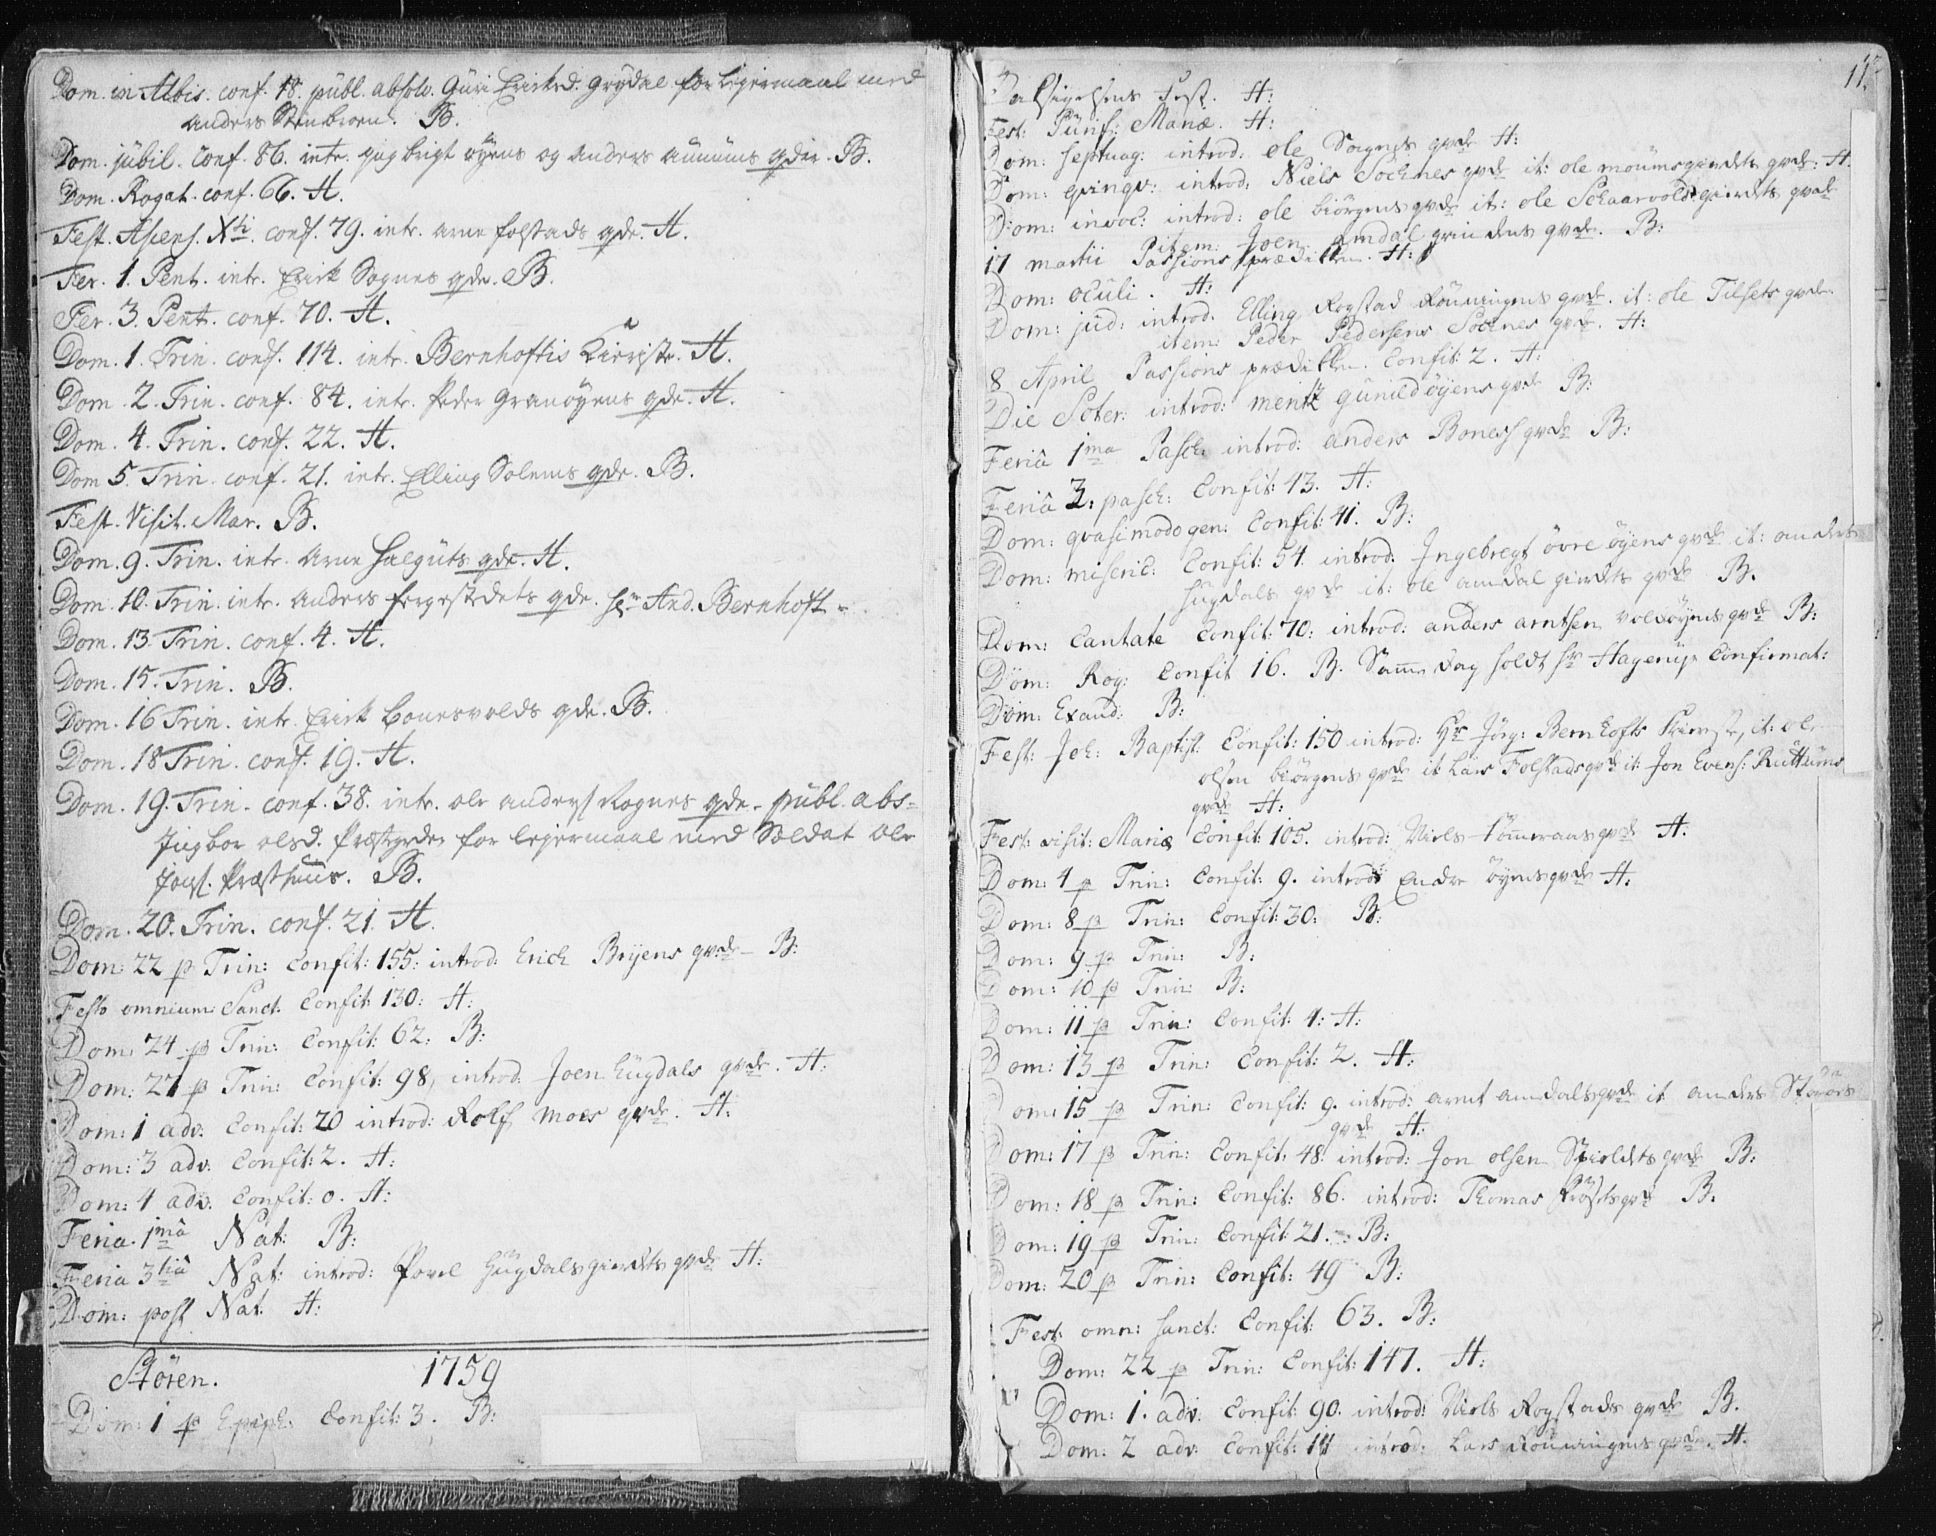 Dom. in Albis. conf. 18. publ. absolv. Guri Ericksd. Grydal for Lejermaal med
Anders Stenbroen. B.
Dom. jubil. conf. 86. intr. Jngbrigt øyens og Anders aunums qder. B.
Dom. Rogat. conf. 66. H.
Fest. Ascens. Xti. conf. 79. intr. Arne folstads qde. H.
Fer. 1. Pent. intr. Erick Sognes qde. B.
Fer. 3. Pent. conf. 70. H.
Dom. 1. Trin. conf. 114. intr. Bernhoftis H.
Dom. 2. Trin. conf. 84. intr. Peder Granøyens qde. H.
Dom. 4. Trin. conf. 22. H.
Dom 5. Trin. conf. 21. intr. Elling Solems qde. B.
Fest. Visit. Mar. B.
Dom. 9. Trin. intr. Arne Halguts qde. H.
Dom. 10. Trin. intr. Anders qde. Hr And. Bernhoft.
Dom. 13. Trin. conf. 4. H.
Dom. 15. Trin. B.
Dom. 16 Trin. intr. Erick Bonesvolds qde. B.
Dom. 18 Trin. conf. 19. H.
Dom. 19. Trin. conf. 38. intr. Ole Anders Rognes qde. publ. abs-
Jngbor olsd. for lejermaal med Soldat Ole
Præsthuus. B.
Dom. 20. Trin. conf. 21. H.
Dom: 22 p Trin: Confit: 155: introd: Erich Bryens qvde B:
Festo omnium Sanct. Confit: 130: H:
Dom: 24 p Trin: Confit: 62: B:
Dom: 27 p Trin: Confit: 98, introd: Joen Hugdals qvde. H:
Dom: 1 adv: Confit: 20 introd: Rolf Moes qvde. H:
Dom: 3 adv: Confit: 2. H:
Dom: 4 adv. Confit: 0. H:
Feria 1ma Nat: B:
Feria 3tia Nat: introd: Povel Hugdalsgierdts qvde H:
Dom: post Nat. H:
Støren. 1759
Dom: 1 p Epiph: Confit: 3. B:
117.
Fest. H:
Fest: Purif: Mariæ. H:
Dom: Septuag: introd: Ole Sognes qvde H:
Dom: qvinqv: introd: Niels Sochnes qvde it: ole moumsgierdets qvde: H.
Dom: invoc: introd: ole biørgens qvde it: ole Schaarvoldsgierdets qvde
item: Joen Amdal grindens qvde. B:
17 martii Passions prædiken. H:
Dom: oculi. H:
Dom: jud: introd: Elling Rogstad Rønningens qvde. it: ole Tilsets qvde
item: Peder Pedersens Sochnes qvde. H:
8 April Passions prædiken. Confit: 2. H:
Die Soter: introd: mentz gunildøyens qvde B:
Feriâ 1ma Pasch: introd: anders Boness qvde B:
Feriâ 3: pasch: Confit: 13. H:
Dom: qvasimodogen: Confit: 41. B:
Dom: miseric: Confit: 54. introd: Jngebregt øvre øyens qvde it: anders
hugdals qvde it: ole amdal gierdets qvde B.
Dom: Cantate Confit: 70: introd: anders arntsen voløyens qvde B:
Dom: Rog: Confit 16. B. Samme dag holdt Hr Hagerup Confirmat:
Dom: Exaud: B:
Fest: Joh: Baptist: Confit: 150 introd: Hr Jørg: Bernhofts it: ole
olsen biørgens qvde it Lars Folstads qvde it: Jon Evens: Ruttums
qvde H:
Fest: visit: Mariæ Confit: 105. introd: Niels qvde H.
Dom: 4 p Trin: Confit: 9. introd: Endre Øyens qvde H.
Dom: 8 p Trin: Confit: 30: B:
Dom: 9 p Trin: B:
Dom: 10 p Trin: B:
Dom: 11 p Trin: Confit: 4: H:
Dom: 13 p Trin: Confit: 2. H:
Dom: 15 p Trin: Confit: 9. introd: arnt amdals qvde it anders
qvde H:
Dom: 17 p Trin: Confit: 48. introd: Jon olsen qvde B:
Dom: 18 p Trin: Confit: 86. introd: Thomas qvde B.
Dom: 19 p Trin: Confit: 21. B:
Dom: 20 p Trin: Confit: 49 B:
Fest: omn: sanct: Confit: 63. B:
Dom: 22 p Trin: Confit: 147. H:
Dom: 1. adv: Confit: 90. introd: Niels Rogstads qvde B.
Dom: 2 adv: Confit: introd: Lars Rønningens qvde. H.